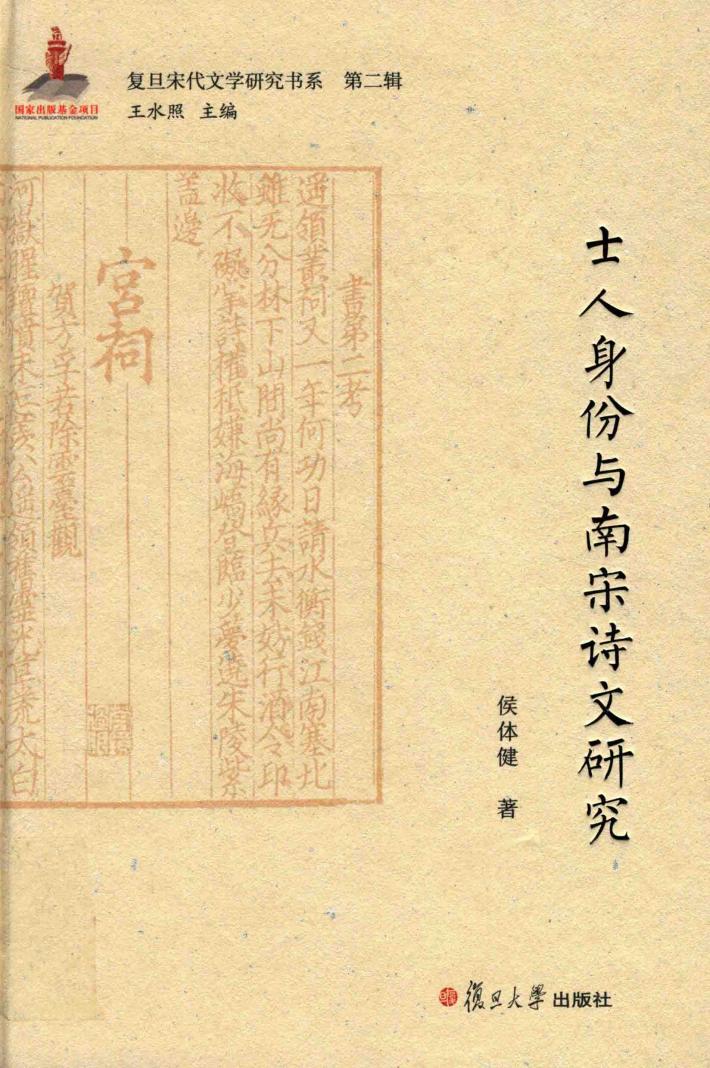 国家出版基金项目
NATIONAL PUBLICATION FOUNDATION
复旦宋代文学研究书系 第二辑
王水照 主编
士人身份与南宋诗文研究
侯体健 著
書第二考
遥領叢祠又一年何功日請水衡錢江南塞北
雖无分林下山間尚有緣
收不礙
蓋邊
宮祠
賀方孚若除雲臺觀
復旦大學出版社